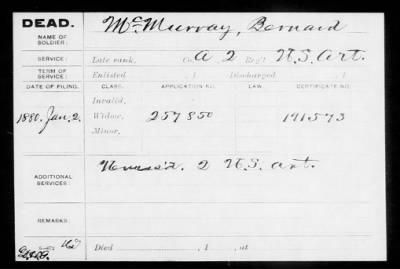 DEAD.
NAME OF SOLDIER: McMurray, Bernard
SERVICE: Late rank, Co. A 2 Reg't U.S. Art.
TERM OF SERVICE: Enlisted , 1 Discharged , 1
DATE OF FILING. CLASS. APPLICATION NO. LAW. CERTIFICATE NO.
Invalid,
1880. Jan. 2. Widow, 257850 191573
Minor,
ADDITIONAL SERVICES: 2 U.S. Art.
REMARKS:
Died , 1 , at